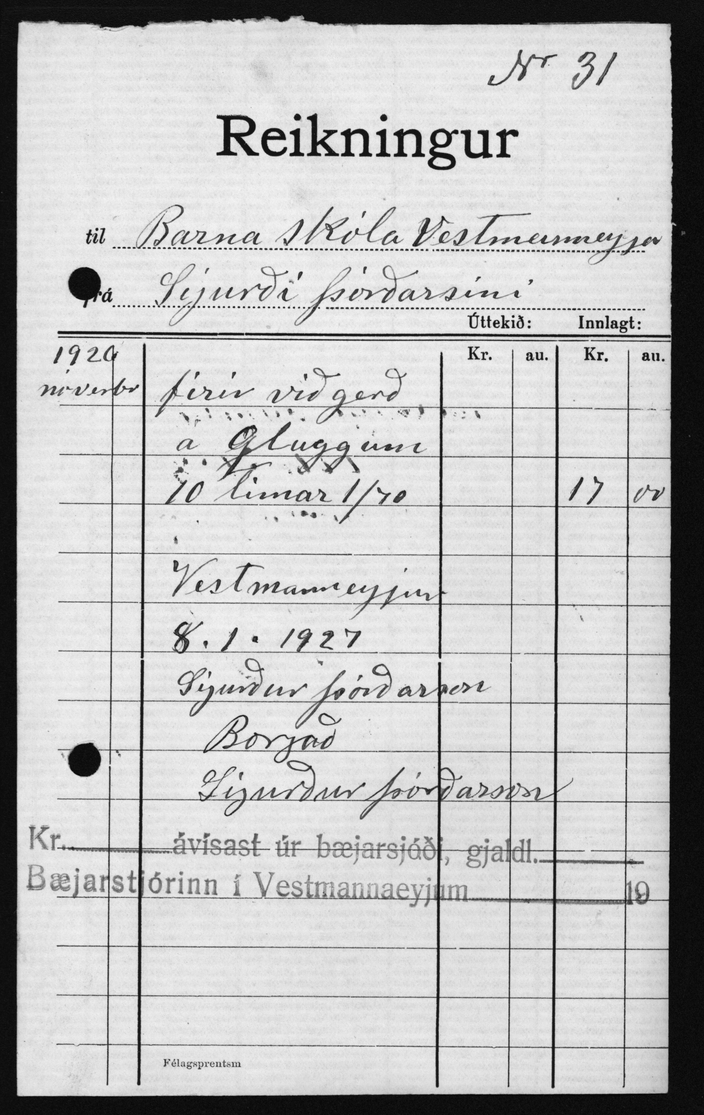 Nr 31
Reikningur
til Barna skóla Vestmanneyja
frá Sigurði Þórðarsini
Úttekið: Innlagt:
Kr. au. Kr. au.
1926
nóverbr firir viðgerð
a Gluggum
10 timar 1/70 17 00
Vestmanneyjur
8.1. 1927
Sigurður Þórðarson
Borgað
Sigurður Þórðarson
Kr. ávísast úr bæjarsjóði, gjaldl.
Bæjarstjórinn í Vestmannaeyjum 19
Félagsprentsm